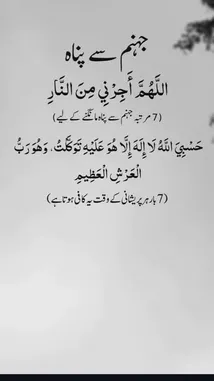 جہنم سے پناہ
اللَّهُمَّ أَجِرْنِي مِنَ النَّارِ
(7 مرتبہ جہنم سے پناہ مانگنے کے لیے)
حَسْبِيَ اللَّهُ لَا إِلَهَ إِلَّا هُوَ عَلَيْهِ تَوَكَّلْتُ، وَهُوَ رَبُّ
الْعَرْشِ الْعَظِيمِ
(7 بار ہر پریشانی کے وقت یہ کافی ہوتا ہے)